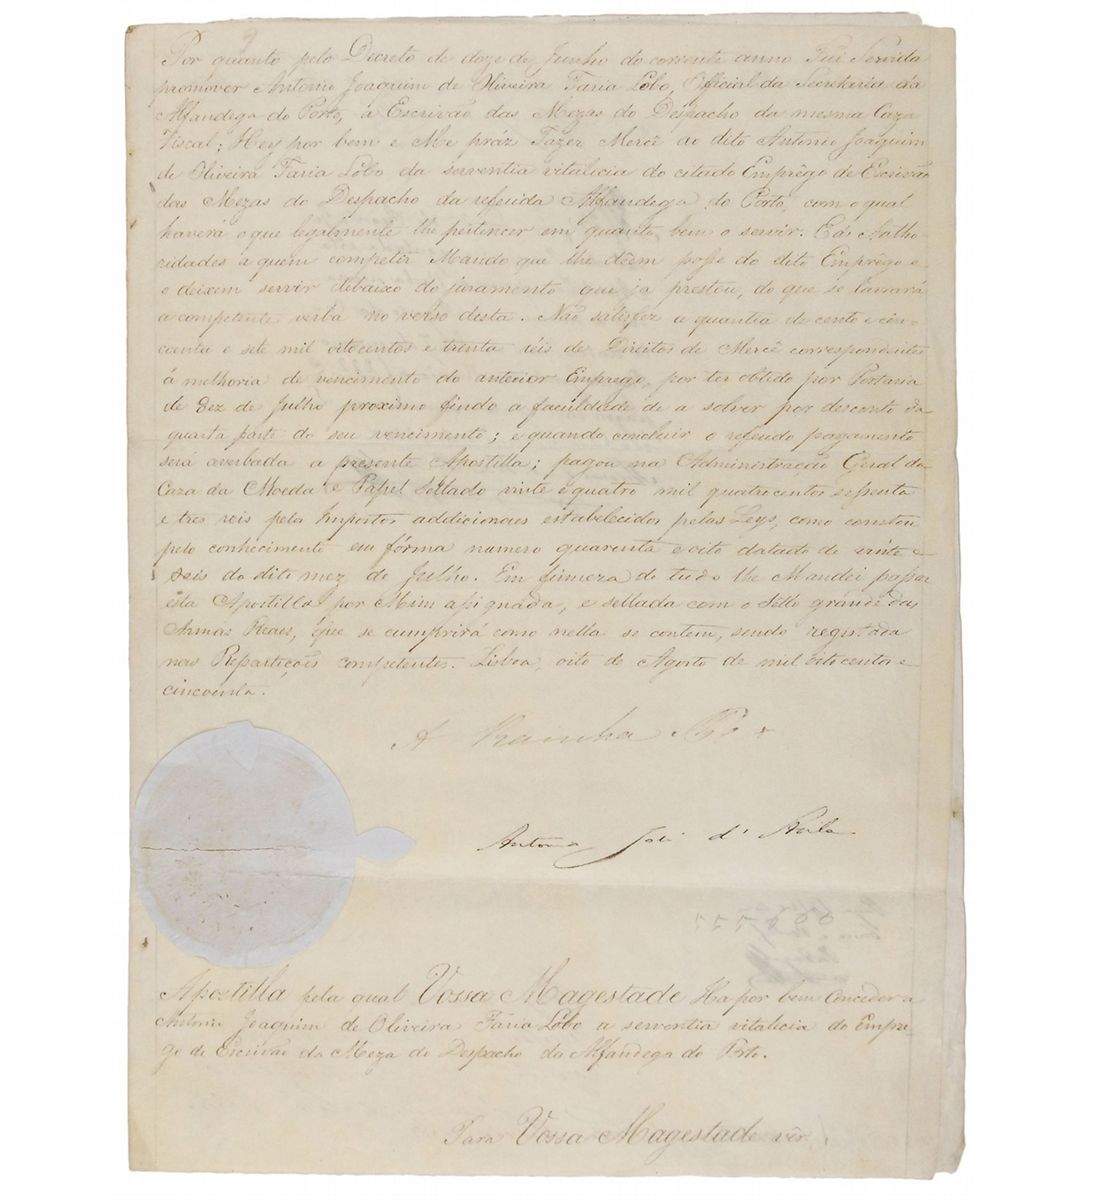 Por quanto pelo Decreto de doze de Junho do corrente anno Fui Servida
promover Antonio Joaquim de Oliveira Faria Lobo, Official da Secretaria da
Alfandega do Porto, a Escrivão das Mezas do Despacho da mesma Caza
Fiscal; Hey por bem e Me práz Fazer Mercê ao dito Antonio Joaquim
de Oliveira Faria Lobo da serventia vitalicia do citado Emprêgo de Escrivão
das Mezas do Despacho da referida Alfandega do Porto, com o qual
haverá o que legalmente lhe pertencer em quanto bem o servir. E ás Autho-
ridades a quem competir Mando que lhe dêem posse do dito Emprêgo e
o deixem servir debaixo do juramento que já prestou, do que se lavrará
a competente verba no verso desta. Não satisfez a quantia de cento e cin-
coenta e sete mil oitocentos e trenta réis de Direitos de Mercê correspondentes
á melhoria de vencimento do anterior Emprego, por ter obtido por Portaria
de dez de Julho proximo findo a faculdade de a solver por desconto da
quarta parte do seu vencimento; e quando concluir o referido pagamento
será averbada a presente Apostilla; pagou na Administração Geral da
Caza da Moeda e Papel Sellado vinte e quatro mil quatrocentos setenta
e tres reis pelos Impostos addicionaes estabelecidos pelas Leys, como constou
pelo conhecimento em fórma numero quarenta e oito datado de vinte e
seis do dito mez de Julho. Em firmeza do tudo lhe Mandei passar
esta Apostilla por Mim assignada, e sellada com o Sello grande das
Armas Reaes, que se cumprirá como nella se contem, sendo registada
nas Repartições competentes. Lisboa, oito de Agosto de mil oitocentos e
cincoenta.
A Rainha
Antonio José d'Avila
Apostilla pela qual Vossa Magestade Ha por bem Conceder a
Antonio Joaquim de Oliveira Faria Lobo a serventia vitalicia do Empre-
go de Escrivão da Meza do Despacho da Alfandega do Porto.
Para Vossa Magestade vêr.